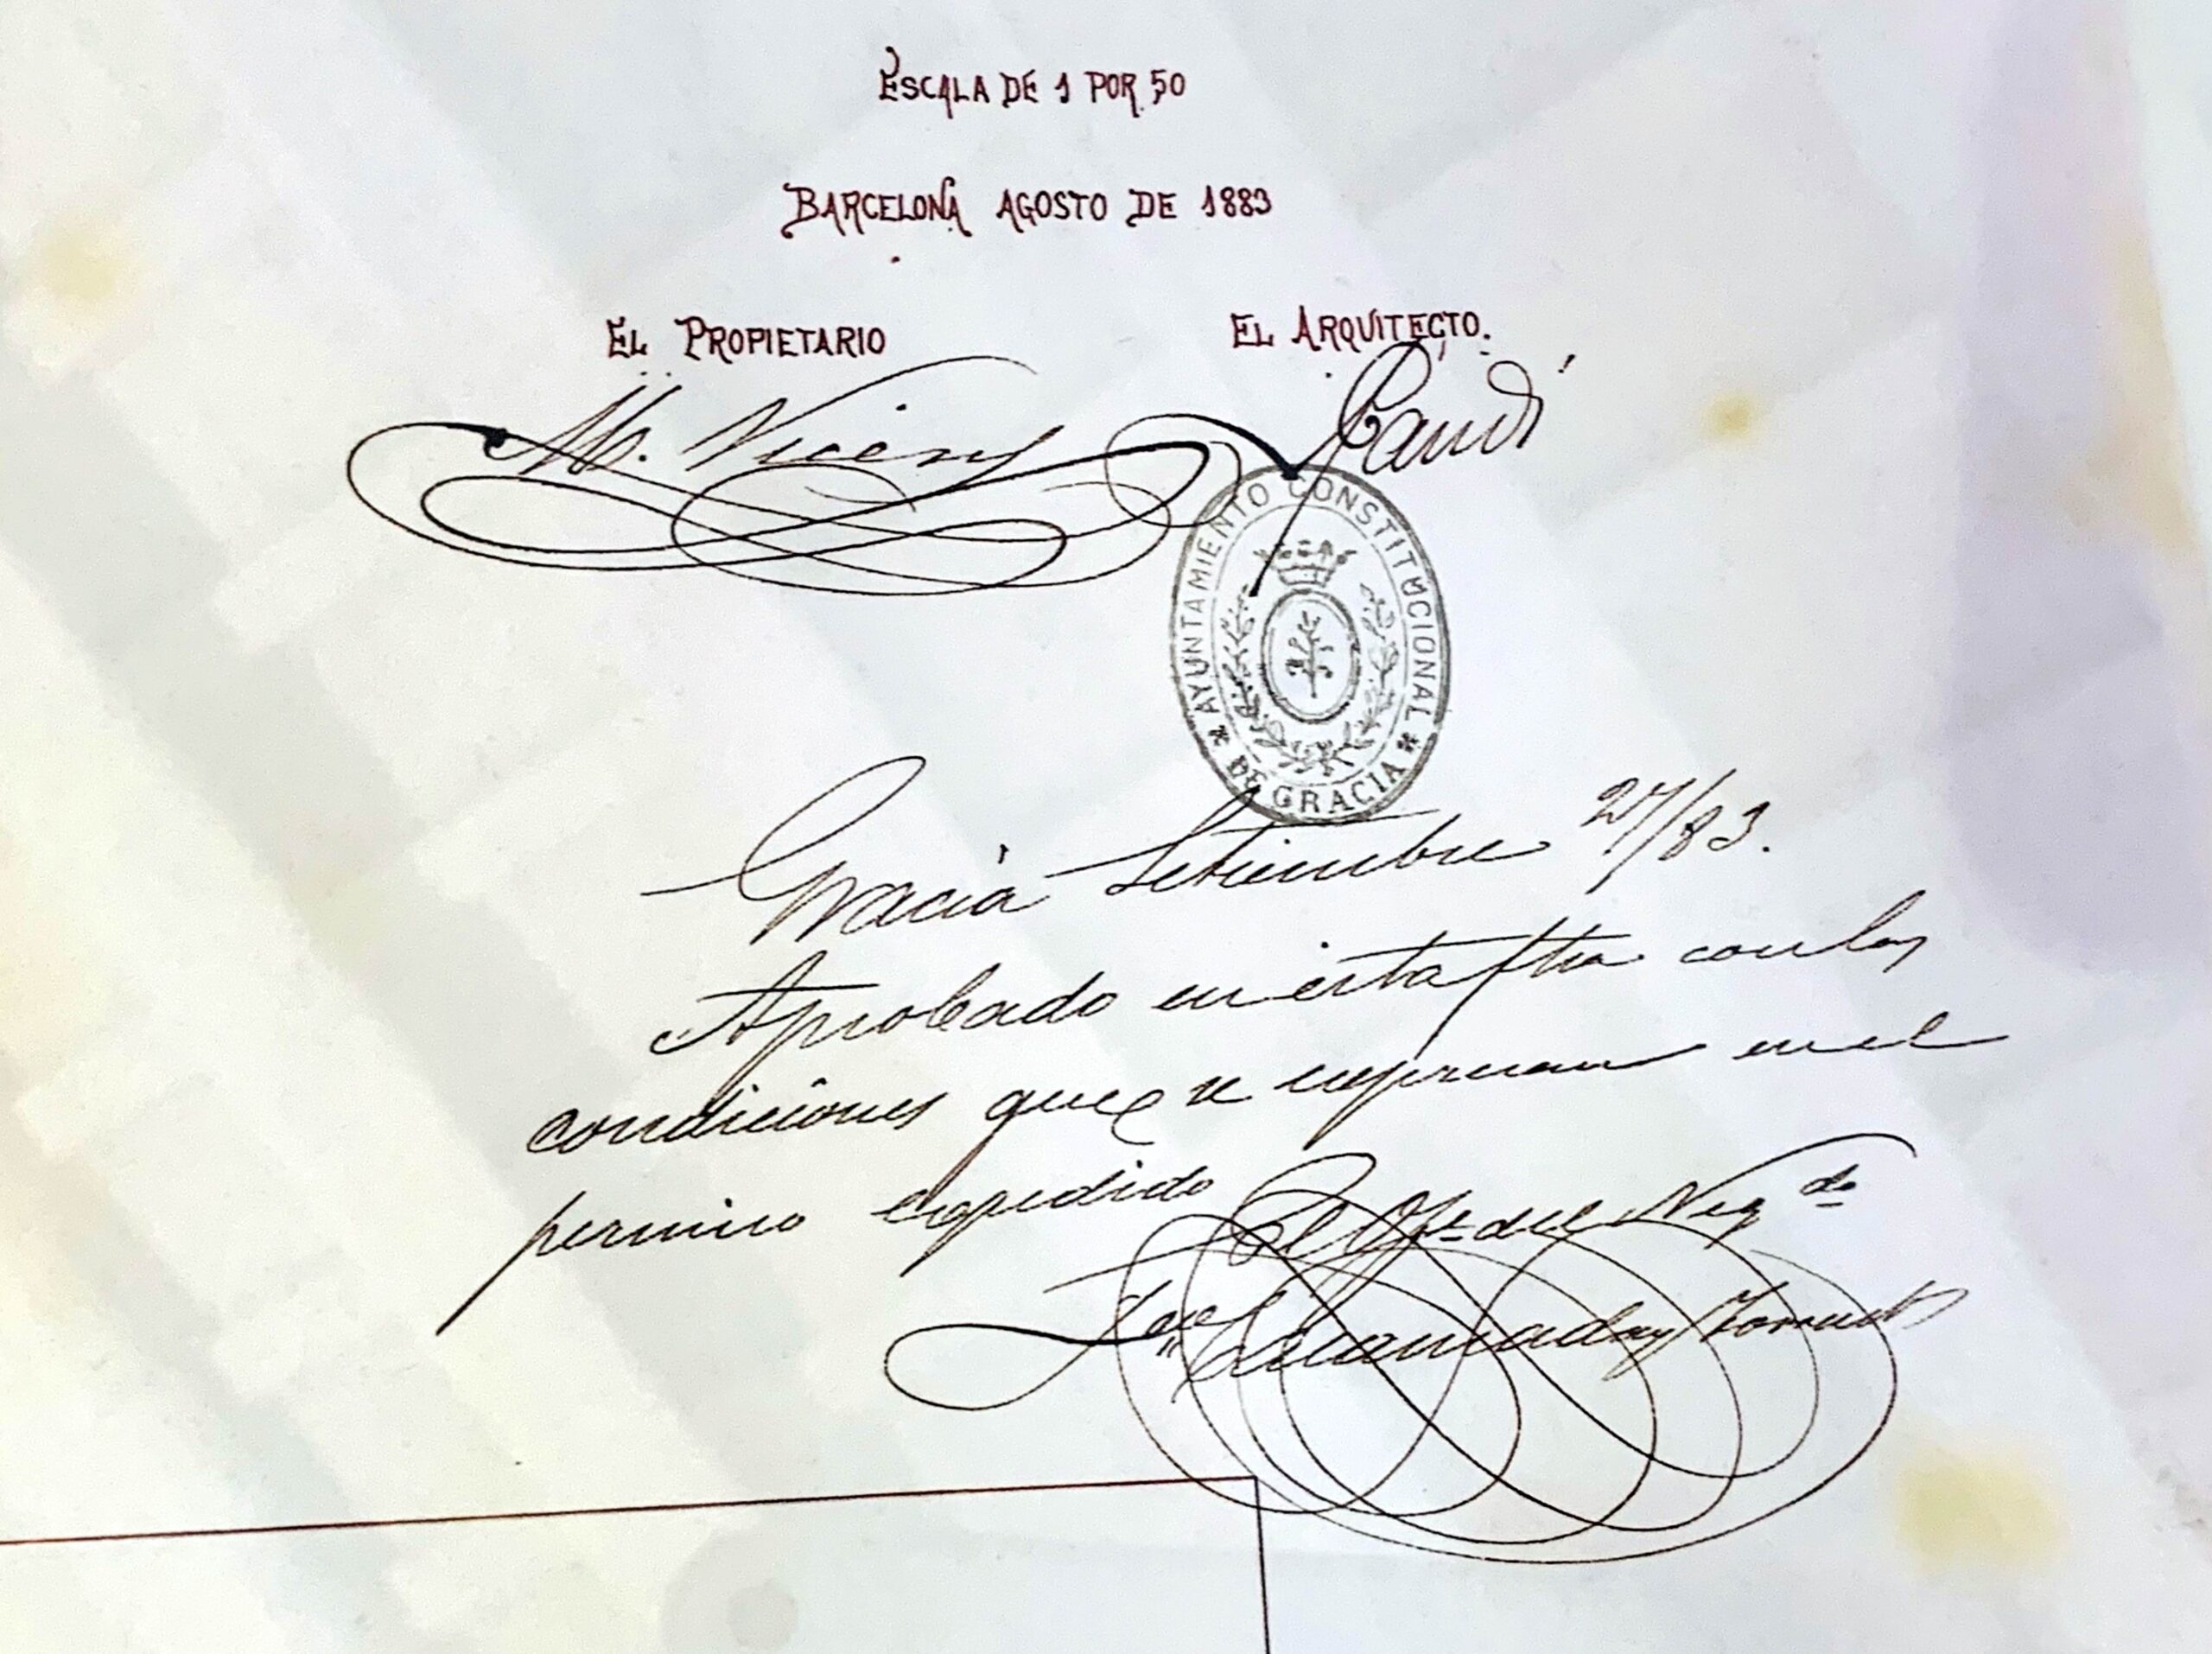 ESCALA DE 1 POR 50
BARCELONA AGOSTO DE 1883
EL PROPIETARIO
EL ARQUITECTO.
M. Vicens
Gaudí
AYUNTAMIENTO CONSTITUCIONAL
* DE GRACIA *
Gracia Setiembre 27/83.
Aprobado en esta fha con las
condiciones que se expresan en el
permiso expedido
El Of.l del Neg.do